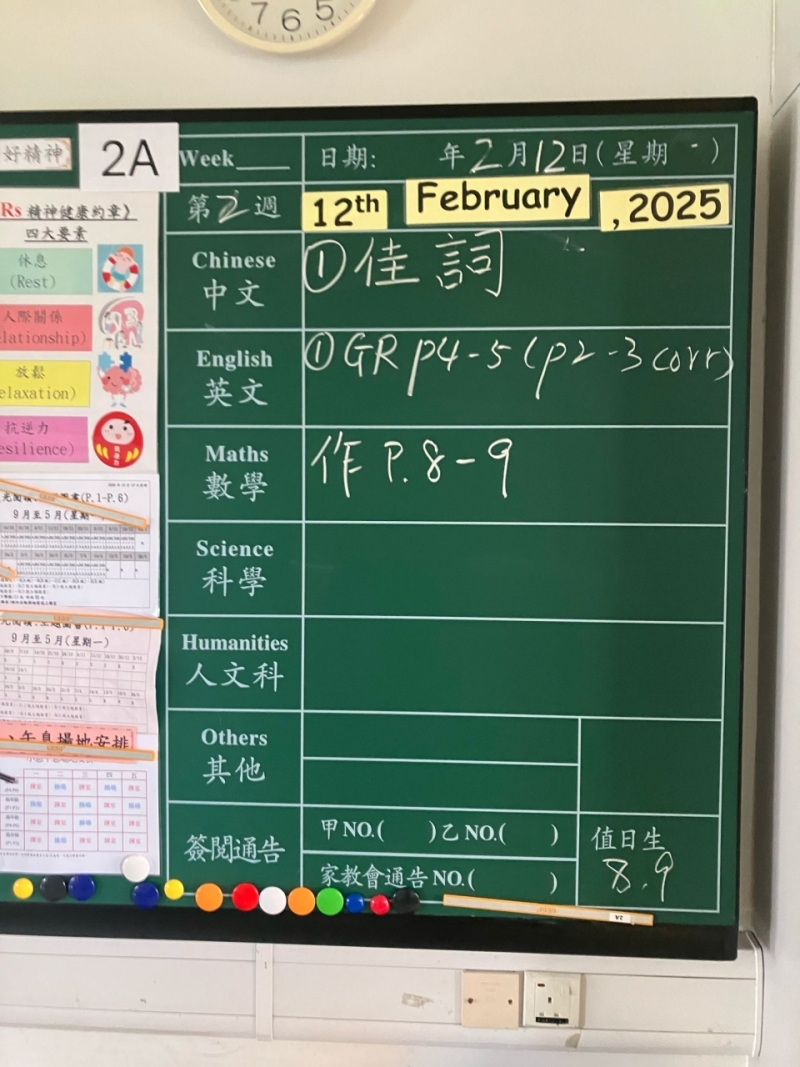 7 6 5
好精神
2A
Week____ 日期: 年2月12日(星期 )
第2週 12th February , 2025
Rs 精神健康約章》
四大要素
休息
(Rest)
人際關係
lationship)
放鬆
elaxation)
抗逆力
esilience)
Chinese
中文
①佳詞
English
英文
①GR p4-5 (p2-3 corr)
Maths
數學
作 P.8-9
Science
科學
Humanities
人文科
Others
其他
簽閱通告
甲NO.( )乙NO.( )
家教會通告NO.( )
值日生
8.9
(P.1-P.6)
9月至5月(星期一
9月至5月(星期一)
、午息掃地安排
一 二 三 四 五
2A